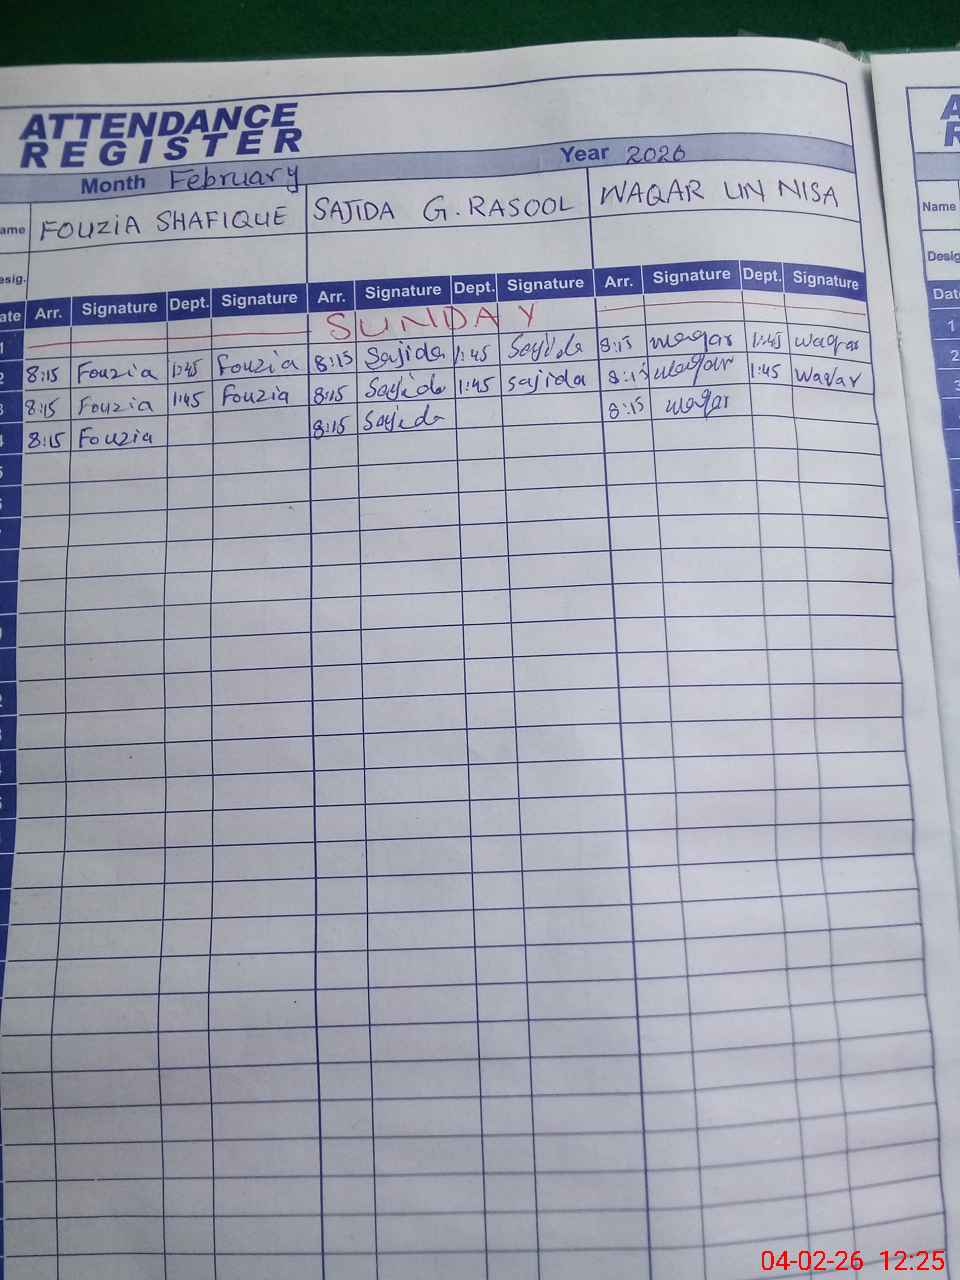 ATTENDANCE
REGISTER
Month February Year 2026
ame FOUZIA SHAFIQUE SAJIDA G. RASOOL WAQAR UN NISA
esig.
ate Arr. Signature Dept. Signature Arr. Signature Dept. Signature Arr. Signature Dept. Signature
1 SUNDAY
2 8:15 Fouzia 1:45 Fouzia 8:15 Sajida 1:45 Sajida 8:15 waqar 1:45 waqar
3 8:15 Fouzia 1:45 Fouzia 8:15 Sajida 1:45 sajida 8:15 waqar 1:45 waqar
4 8:15 Fouzia 8:15 Sajida 8:15 waqar
5
6
A
R
Name
Desig
Date
1
2
3
04-02-26 12:25